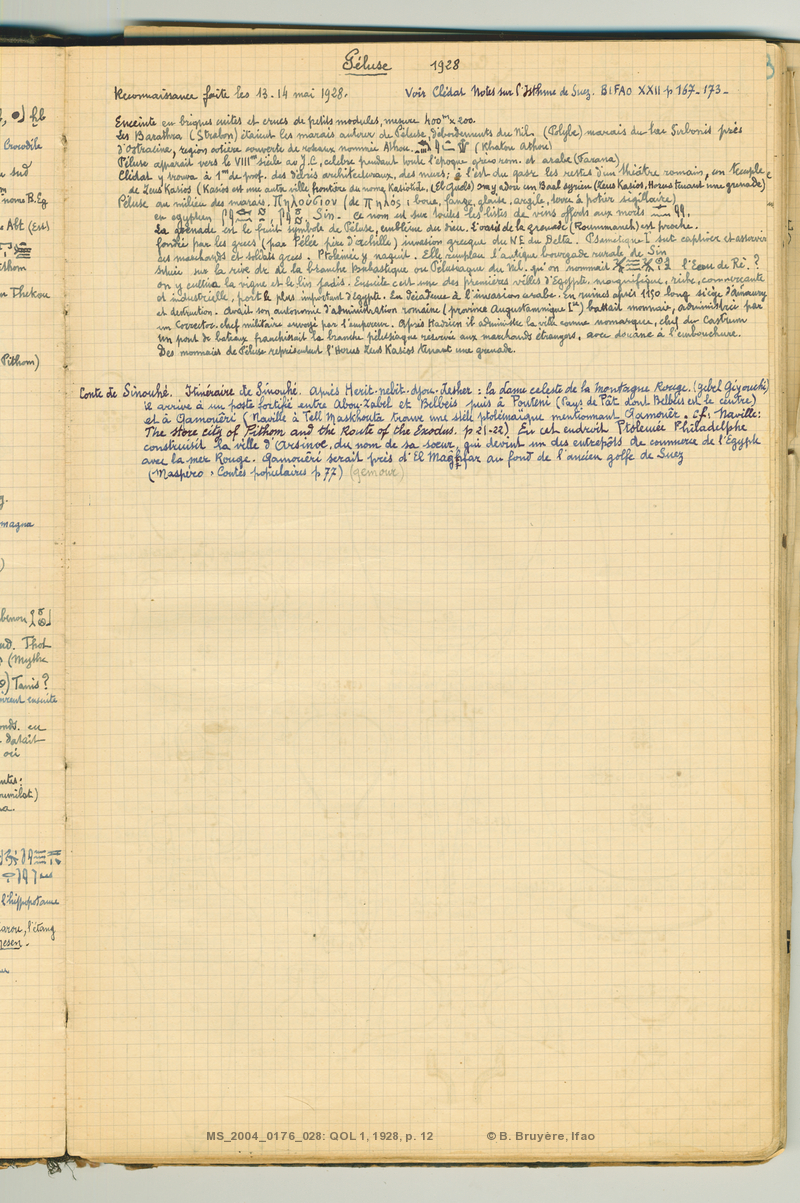 Péluse 1928
Reconnaissance faite les 13-14 mai 1928. Voir Clédat Notes sur l'Isthme de Suez. BIFAO XXII p 167-173-
Enceinte en briques cuites et crues de petits modules, mesure 400m x 200.
Les Barathra (Strabon) étaient les marais autour de Péluse, débordements du Nil. (Polybe) marais du lac Sirbonis près
d'Ostracine, région côtière couverte de roseaux nommée Athou. (Khalou Athou)
Péluse apparait vers le VIIIme siècle av J.C, célèbre pendant toute l'époque gréco rom. et arabe (Farama)
Clédat y trouva à 1m de prof. des débris architecturaux, des murs; à l'est du gasr les restes d'un théâtre romain, un temple
de Zeus Kasios (Kasios est une autre ville frontière du nome Kasiotide, (El Guels) on y adora un Baal syrien (Zeus Kasios, Horus tenant une grenade)
Péluse au milieu des marais. Πηλούσιον (de πηλός: boue, fange, glaise, argile, terre à potier sigillaire)
en egyptien Sin. ce nom est sur toutes les listes de vins offerts aux morts
La grenade est le fruit symbole de Péluse, emblème du dieu. L'oasis de la grenade (Roummaneh) est proche.
fondée par les grecs (par Pélée père d'Achille) invasion grecque du NE du Delta. Psametique I sut captiver et asservir
ces marchands et soldats grecs. Ptolémée y naquit. Elle remplaça l'antique bourgade rurale de Sin
située sur la rive dr de la branche Bubastique ou Pélusiaque du Nil. qu'on nommait l'Eau de Rê. ?
on y cultiva la vigne et le lin jadis. Ensuite c'est une des premières villes d'Egypte, magnifique, riche, commerçante
et industrielle, port le plus important d'Egypte. En décadence à l'invasion arabe. En ruines après 1150 long siège d'Amaury
et destruction. Avait son autonomie d'administration romaine (province Augustamnique Ire) battait monnaie, administrée par
un Corrector. chef militaire envoyé par l'empereur. Après Hadrien il administre la ville comme nomarque, chef du Castrum
Un pont de bateaux franchissait la branche pélusiaque réservé aux marchands étrangers, avec douane à l'embouchure.
Des monnaies de Péluse représentent l'Horus Zeus Kasios tenant une grenade.
Conte de Sinouhé. Itinéraire de Sinouhé. Après Herit-nebit-djou-desher : la dame celeste de la montagne Rouge. (gebel Giyouchi)
il arrive à un poste fortifié entre Abou-Zabel et Belbeis puis à Pouteni (Pays de Pât dont Belbeis est le centre)
et à Qamouêri (Naville à Tell Maskhouta trouve une stèle ptolémaïque mentionnant Qamouêr. cf: Naville:
The store city of Pithom and the Route of the Exodus. p 21-22) En cet endroit Ptolemée Philadelphe
construisit la ville d'Arsinoé, du nom de sa soeur, qui devint un des entrepôts de commerce de l'Egypte
avec la mer Rouge. Qamouêri serait près d'El Maghfar au fond de l'ancien golfe de Suez
(Maspéro, Contes populaires p 77) (gemour)
MS_2004_0176_028: QOL 1, 1928, p. 12 © B. Bruyère, Ifao